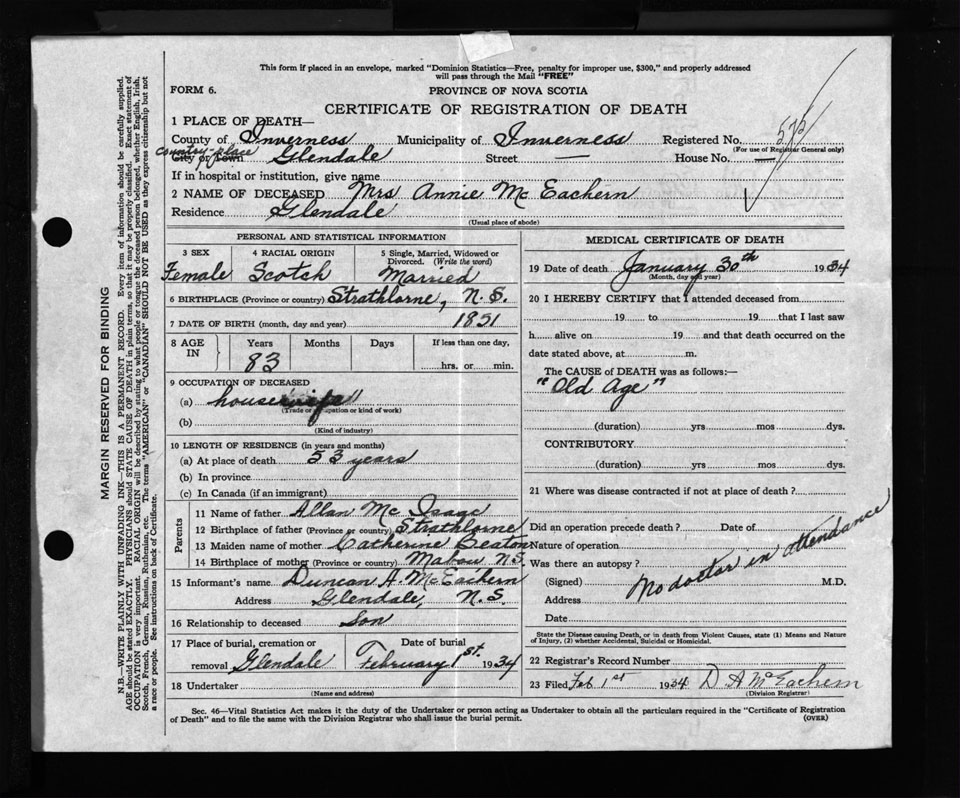 This form if placed in an envelope, marked "Dominion Statistics—Free, penalty for improper use, $300," and properly addressed
will pass through the Mail "FREE"
FORM 6.
PROVINCE OF NOVA SCOTIA
CERTIFICATE OF REGISTRATION OF DEATH
1 PLACE OF DEATH—
County of Inverness Municipality of Inverness Registered No.
(For use of Registrar General only)
country-place
City or Town Glendale Street — House No. —
If in hospital or institution, give name
2 NAME OF DECEASED Mrs Annie McEachern
Residence Glendale
(Usual place of abode)
PERSONAL AND STATISTICAL INFORMATION
3 SEX 4 RACIAL ORIGIN 5 Single, Married, Widowed or
Divorced. (Write the word)
Female Scotch Married
6 BIRTHPLACE (Province or country) Strathlorne, N.S.
7 DATE OF BIRTH (month, day and year) 1851
8 AGE IN Years Months Days If less than one day,
83 hrs. or min.
9 OCCUPATION OF DECEASED
(a) housewife
(Trade or occupation or kind of work)
(b)
(Kind of industry)
10 LENGTH OF RESIDENCE (in years and months)
(a) At place of death 53 years
(b) In province
(c) In Canada (if an immigrant)
Parents
11 Name of father Allan McIsaac
12 Birthplace of father (Province or country) Strathlorne
13 Maiden name of mother Catherine Beaton
14 Birthplace of mother (Province or country) Mabou N.S.
15 Informant's name Duncan A. McEachern
Address Glendale, N.S.
16 Relationship to deceased Son
17 Place of burial, cremation or Date of burial
removal Glendale February 1st. 1934
18 Undertaker
(Name and address)
MEDICAL CERTIFICATE OF DEATH
19 Date of death January 30th 1934
(Month, day and year)
20 I HEREBY CERTIFY that I attended deceased from
19 to 19 that I last saw
h alive on 19 and that death occurred on the
date stated above, at m.
The CAUSE of DEATH was as follows:—
"Old Age"
(duration) yrs mos dys.
CONTRIBUTORY
(duration) yrs mos dys.
21 Where was disease contracted if not at place of death?
Did an operation precede death? Date of
Nature of operation
Was there an autopsy?
(Signed) M.D.
No doctor in attendance
Address
Date
State the Disease causing Death, or in death from Violent Causes, state (1) Means and Nature
of Injury, (2) whether Accidental, Suicidal or Homicidal.
22 Registrar's Record Number
23 Filed Feb 1st 1934 D A McEachern
(Division Registrar)
Sec. 46—Vital Statistics Act makes it the duty of the Undertaker or person acting as Undertaker to obtain all the particulars required in the "Certificate of Registration
of Death" and to file the same with the Division Registrar who shall issue the burial permit.
(OVER)
MARGIN RESERVED FOR BINDING
N.B.—WRITE PLAINLY WITH UNFADING INK—THIS IS A PERMANENT RECORD. Every item of information should be carefully supplied.
AGE should be stated EXACTLY. PHYSICIANS should STATE CAUSE OF DEATH in plain terms, so that it may be properly classified. Exact statement of
OCCUPATION is very important. RACIAL ORIGIN will be described by stating to what people or tongue the deceased person belonged, whether English, Irish,
Scotch, French, German, Russian, Ruthenian, etc. The terms "AMERICAN" or "CANADIAN" SHOULD NOT BE USED as they express citizenship but not
a race or people. See instructions on back of Certificate.